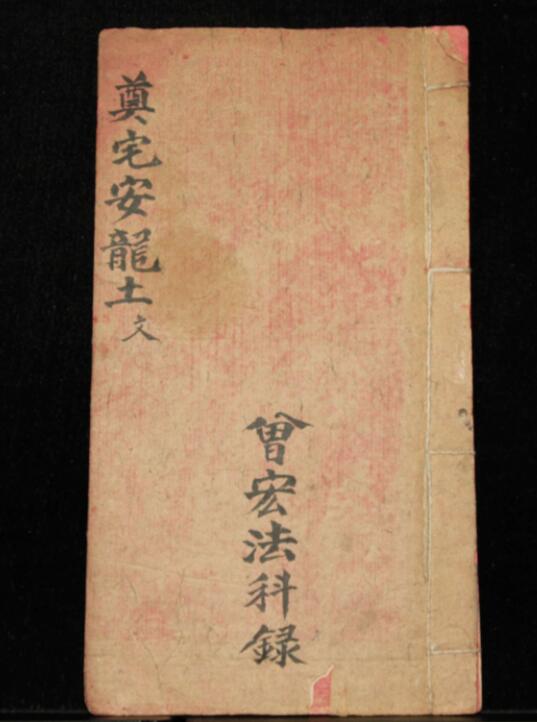 奠宅安龍土文
曾宏法科録